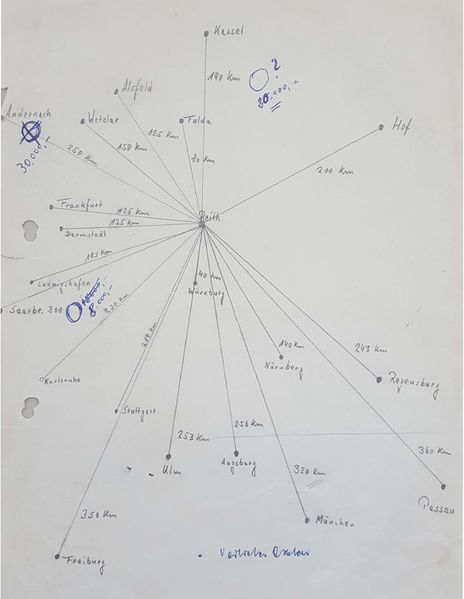 Kassel
190 Km
?
20.000,-
Alsfeld
Andernach
Wetzlar
125 Km
Fulda
Hof
150 Km
30.000,-
250 Km
80 Km
200 Km
Frankfurt
125 Km
Reith
125 Km
Darmstadt
183 Km
Ludwigshafen
40 Km
Würzburg
Saarbr. 300
8000,-
230 Km
219 Km
140 Km
Nürnberg
243 Km
Regensburg
Karlsruhe
Stuttgart
256 Km
253 Km
360 Km
Ulm
Augsburg
320 Km
Passau
350 Km
München
Freiburg